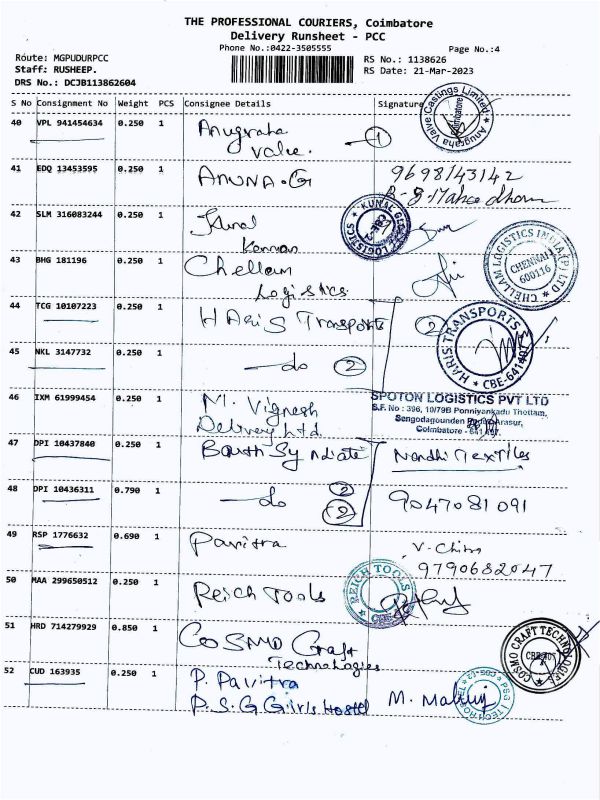 THE PROFESSIONAL COURIERS, Coimbatore
Delivery Runsheet - PCC
Phone No.:0422-3505555 Page No.:4
Route: MGPUDURPCC RS No.: 1138626
Staff: RUSHEEP. RS Date: 21-Mar-2023
DRS No.: DCJB113862604
S No Consignment No Weight PCS Consignee Details Signature
40 VPL 941454634 0.250 1 Anugraha 1
Value.
Anugraha Valve Castings Limited
Coimbatore
41 EDQ 13453595 0.250 1 ARUNA.G 9698143142
42 SLM 316083244 0.250 1 Kunal
Kannan
LOGISTICS
43 BHG 181196 0.250 1 Chellam
Logistics
CHELLAM LOGISTICS INDIA (P) LTD
CHENNAI
600116
44 TCG 10107223 0.250 1 HARIS Transports 2
HARIS TRANSPORTS
CBE-641407
45 NKL 3147732 0.250 1 do 2
46 IXM 61999454 0.250 1 M. Vignesh
Delivery Ltd
SPOTON LOGISTICS PVT LTD
S.F. No : 396, 10/79B Ponniyankadu Thottam,
Sengodagounden Arasur,
Coimbatore - 641 407.
47 DPI 10437840 0.250 1 Booth Syndicate Nandhi Textiles
48 DPI 10436311 0.790 1 do 2 9047081091
2
49 RSP 1776632 0.690 1 Pavitra V-
9790682047
50 MAA 299650512 0.250 1 Reich Tools
REICH TOOLS
51 HRD 714279929 0.850 1 COSMO Craft
Technologies
COSMO CRAFT TECHNOLOGIES
52 CUD 163935 0.250 1 P. Pavitra
P.S.G Girls Hostel M.
PSG